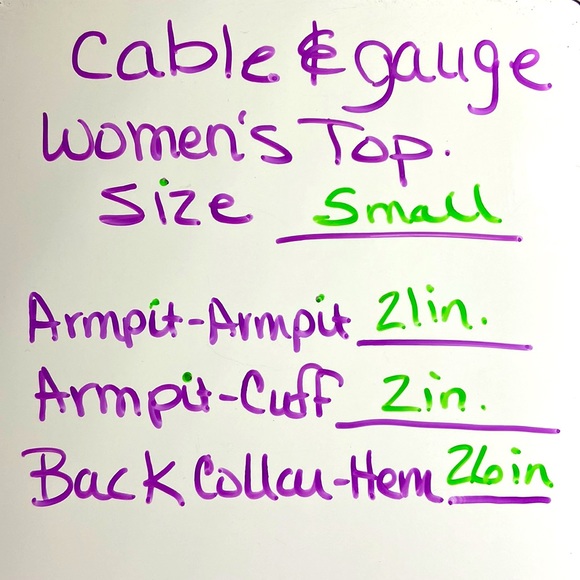 Cable & gauge
Women's Top.
Size Small
Armpit-Armpit 21in.
Armpit-Cuff 2in.
Back Collar-Hem 26in